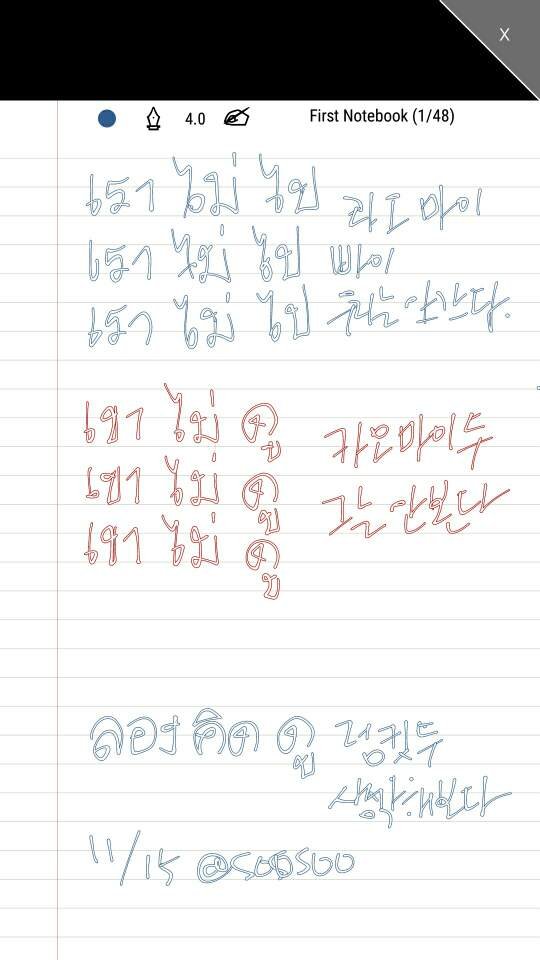 X
4.0 First Notebook (1/48)
เรา ไม่ ไป 라오 마이
เรา ไม่ ไป 빠이
เรา ไม่ ไป 우리는 안간다.
เขา ไม่ ดู 카오 마이 두
เขา ไม่ ดู 그는 안본다
เขา ไม่ ดู
ลอง คิด ดู 렁 킷 두
생각해본다
11/15 @soosoo